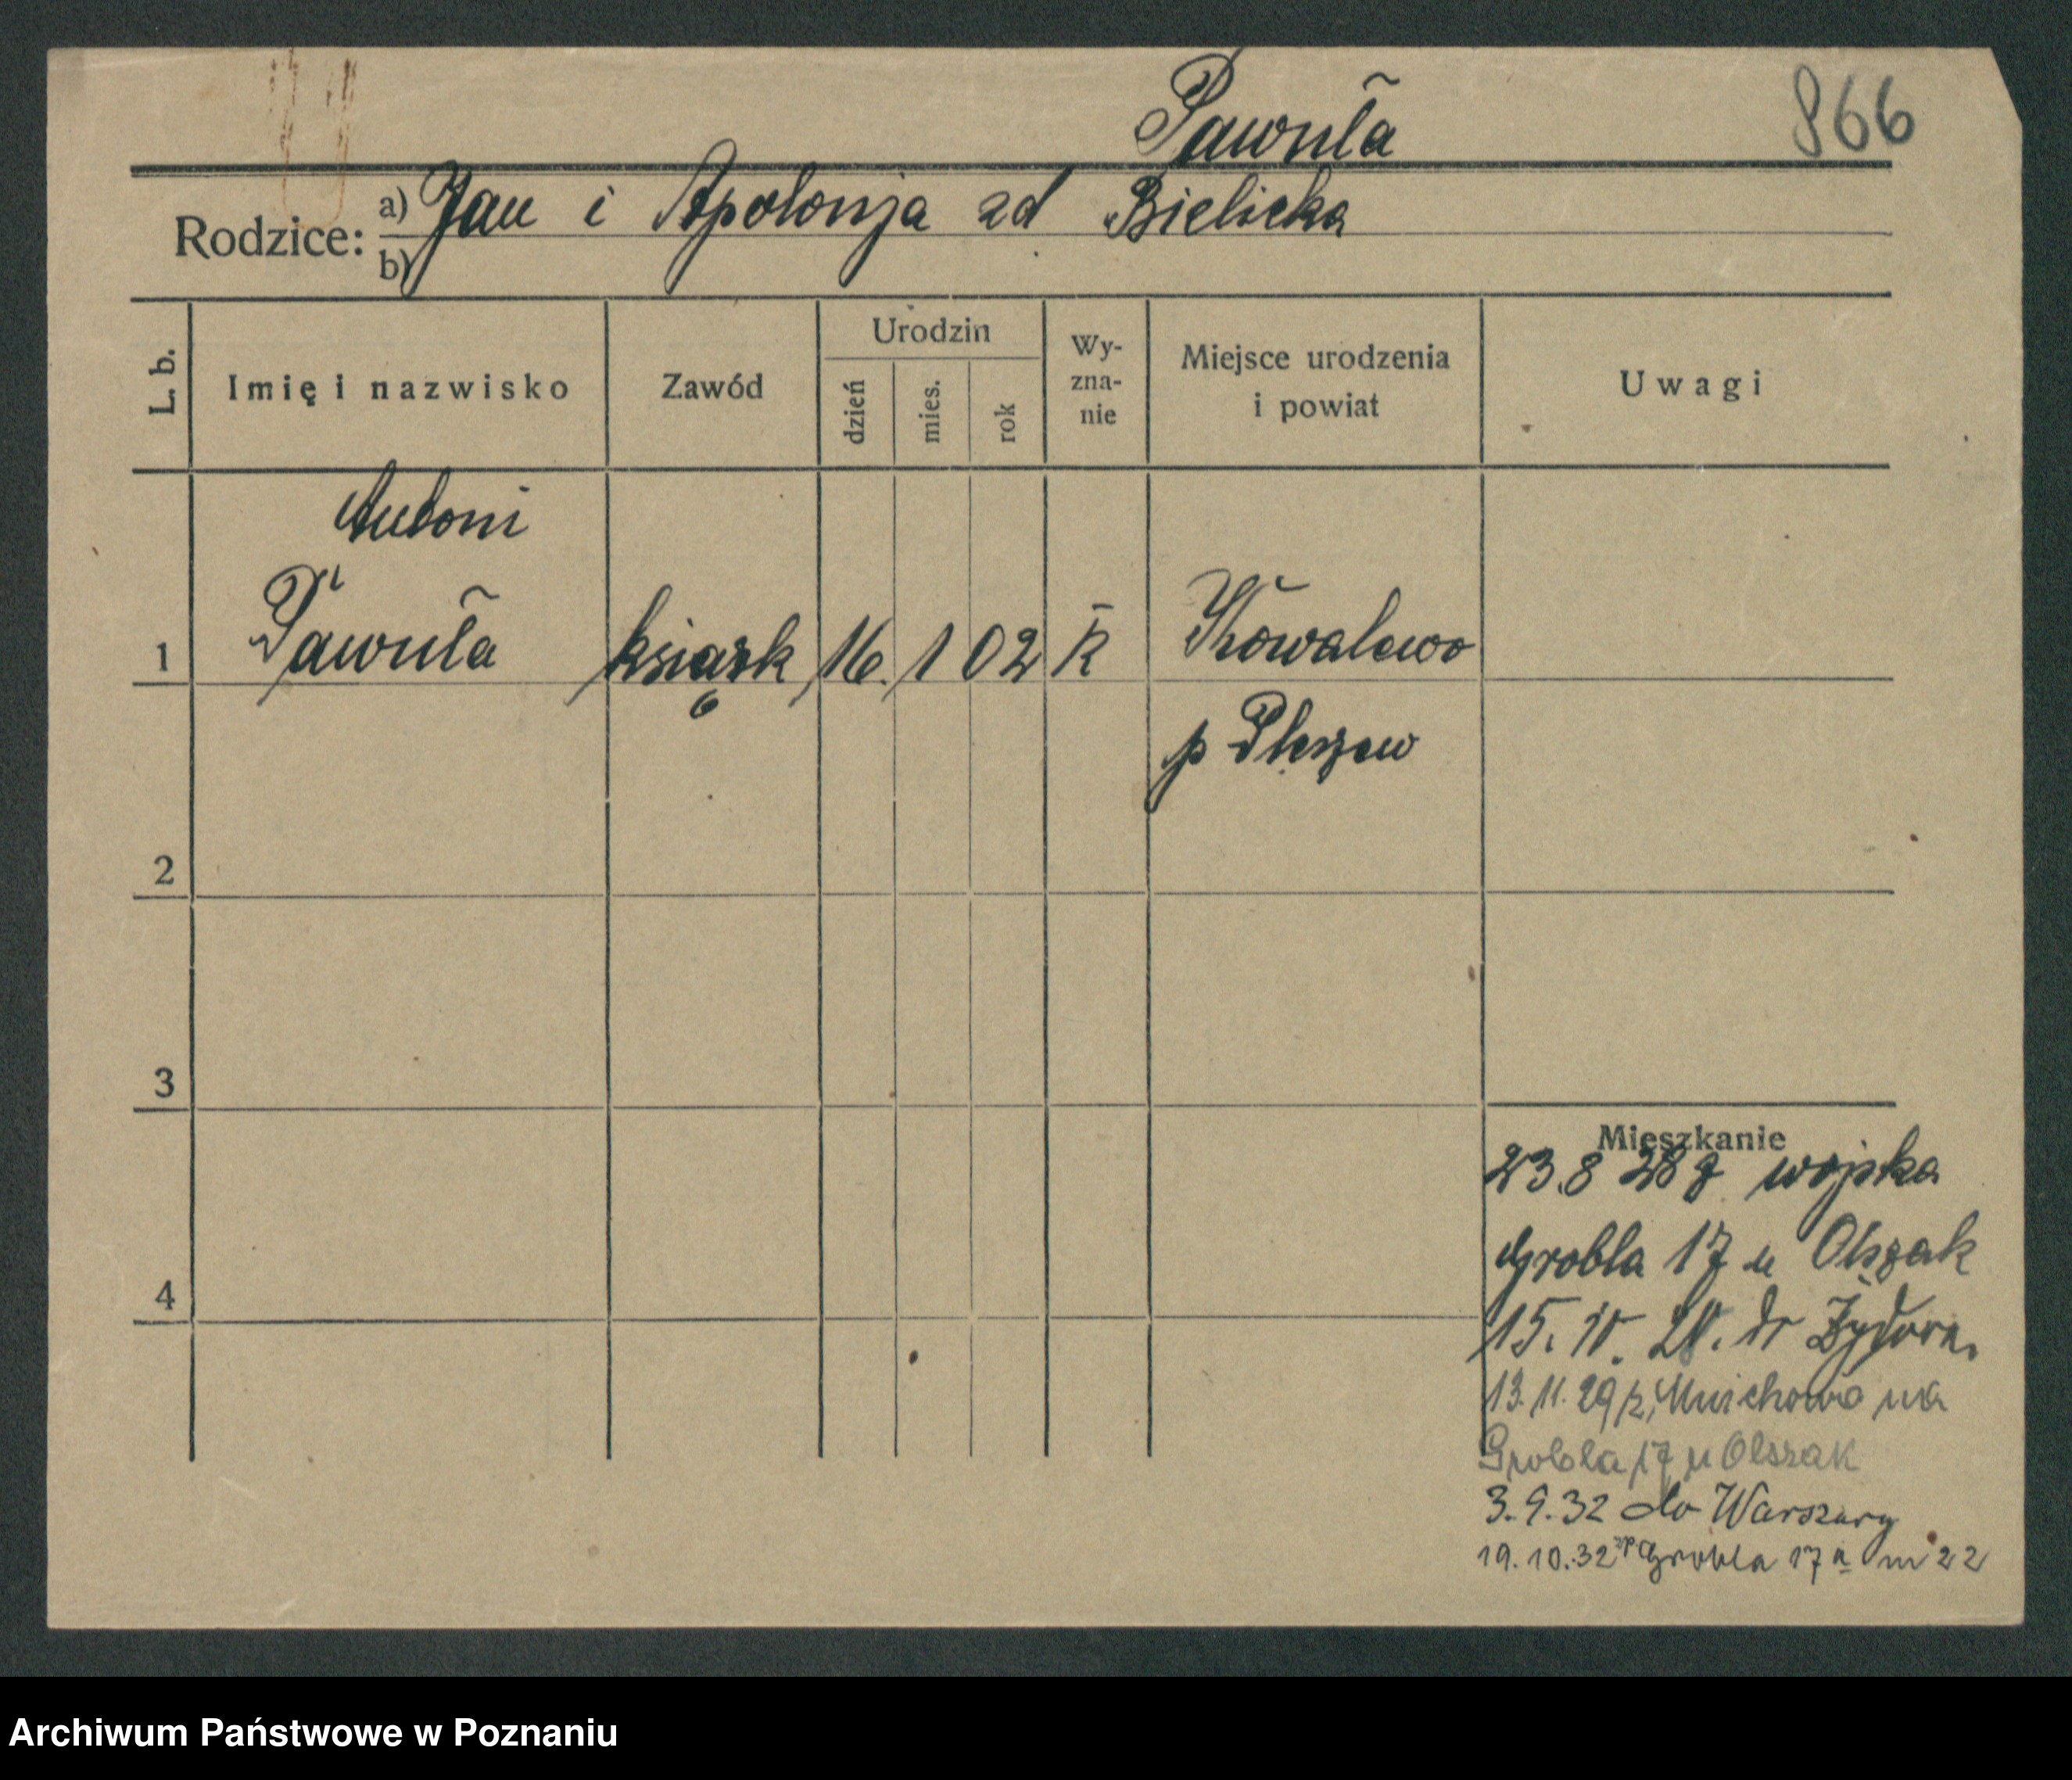 Pawuła
866
Rodzice: a) Jan i Apolonja zd Bielicka
b)
L. b.
Imię i nazwisko
Zawód
Urodzin
dzień
mies.
rok
Wy-
zna-
nie
Miejsce urodzenia
i powiat
Uwagi
Antoni
1 Pawuła książk 16. 1 02 K Kowalewo
p Pleszew
2
3
4
Mieszkanie
23.8 28 z wojska
Grobla 17 u Olszak
15. 10. 28.
13. 11. 29 z Mnichowo na
Grobla 17 u Olszak
3. 9. 32 do Warszawy
19. 10. 32 Grobla 17 a m 22
Archiwum Państwowe w Poznaniu